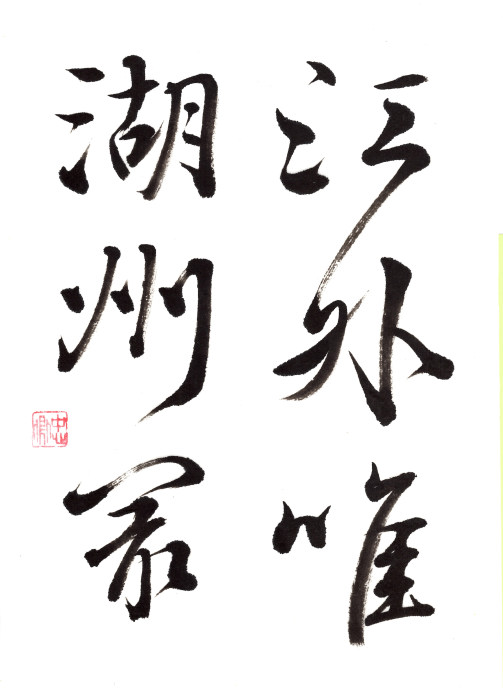 江外唯
湖州最